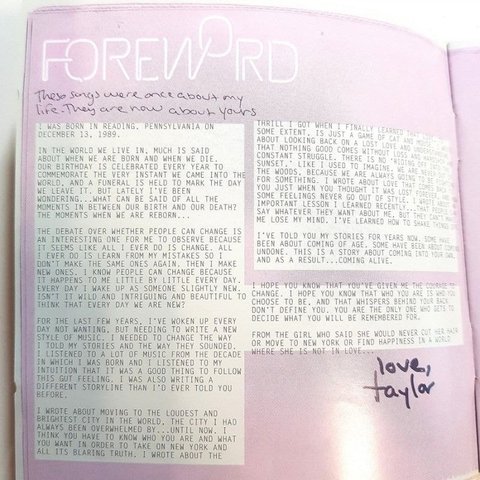 FOREWORD
These songs were once about my
life. They are now about yours
I WAS BORN IN READING, PENNSYLVANIA ON
DECEMBER 13, 1989.
IN THE WORLD WE LIVE IN, MUCH IS SAID
ABOUT WHEN WE ARE BORN AND WHEN WE DIE.
OUR BIRTHDAY IS CELEBRATED EVERY YEAR TO
COMMEMORATE THE VERY INSTANT WE CAME INTO THE
WORLD, AND A FUNERAL IS HELD TO MARK THE DAY
WE LEAVE IT. BUT LATELY I'VE BEEN
WONDERING...WHAT CAN BE SAID OF ALL THE
MOMENTS IN BETWEEN OUR BIRTH AND OUR DEATH?
THE MOMENTS WHEN WE ARE REBORN...
THE DEBATE OVER WHETHER PEOPLE CAN CHANGE IS
AN INTERESTING ONE FOR ME TO OBSERVE BECAUSE
IT SEEMS LIKE ALL I EVER DO IS CHANGE. ALL
I EVER DO IS LEARN FROM MY MISTAKES SO I
DON'T MAKE THE SAME ONES AGAIN. THEN I MAKE
NEW ONES. I KNOW PEOPLE CAN CHANGE BECAUSE
IT HAPPENS TO ME LITTLE BY LITTLE EVERY DAY.
EVERY DAY I WAKE UP AS SOMEONE SLIGHTLY NEW.
ISN'T IT WILD AND INTRIGUING AND BEAUTIFUL TO
THINK THAT EVERY DAY WE ARE NEW?
FOR THE LAST FEW YEARS, I'VE WOKEN UP EVERY
DAY NOT WANTING, BUT NEEDING TO WRITE A NEW
STYLE OF MUSIC. I NEEDED TO CHANGE THE WAY
I TOLD MY STORIES AND THE WAY THEY SOUNDED.
I LISTENED TO A LOT OF MUSIC FROM THE DECADE
IN WHICH I WAS BORN AND I LISTENED TO MY
INTUITION THAT IT WAS A GOOD THING TO FOLLOW
THIS GUT FEELING. I WAS ALSO WRITING A
DIFFERENT STORYLINE THAN I'D EVER TOLD YOU
BEFORE.
I WROTE ABOUT MOVING TO THE LOUDEST AND
BRIGHTEST CITY IN THE WORLD, THE CITY I HAD
ALWAYS BEEN OVERWHELMED BY...UNTIL NOW. I
THINK YOU HAVE TO KNOW WHO YOU ARE AND WHAT
YOU WANT IN ORDER TO TAKE ON NEW YORK AND
ALL ITS BLARING TRUTH. I WROTE ABOUT THE
THRILL I GOT WHEN I FINALLY LEARNED THAT
SOME EXTENT, IS JUST A GAME OF CAT AND
ABOUT LOOKING BACK ON A LOST LOVE AND
THAT NOTHING GOOD COMES WITHOUT LOSS AND
CONSTANT STRUGGLE. THERE IS NO "RIDING
SUNSET," LIKE I USED TO IMAGINE. WE ARE
THE WOODS, BECAUSE WE ARE ALWAYS GOING
FOR SOMETHING. I WROTE ABOUT LOVE THAT
YOU JUST WHEN YOU THOUGHT IT WAS LOST
SOME FEELINGS NEVER GO OUT OF STYLE. I
IMPORTANT LESSON I LEARNED RECENTLY...
SAY WHATEVER THEY WANT ABOUT ME, BUT THEY
ME LOSE MY MIND. I'VE LEARNED HOW TO SHAKE THINGS
I'VE TOLD YOU MY STORIES FOR YEARS NOW. SOME HAVE
BEEN ABOUT COMING OF AGE. SOME HAVE BEEN ABOUT COMING
UNDONE. THIS IS A STORY ABOUT COMING INTO YOUR OWN,
AND AS A RESULT...COMING ALIVE.
I HOPE YOU KNOW THAT YOU'VE GIVEN ME THE COURAGE TO
CHANGE. I HOPE YOU KNOW THAT WHO YOU ARE IS WHO YOU
CHOOSE TO BE, AND THAT WHISPERS BEHIND YOUR BACK
DON'T DEFINE YOU. YOU ARE THE ONLY ONE WHO GETS TO
DECIDE WHAT YOU WILL BE REMEMBERED FOR.
FROM THE GIRL WHO SAID SHE WOULD NEVER CUT HER HAIR
OR MOVE TO NEW YORK OR FIND HAPPINESS IN A WORLD
WHERE SHE IS NOT IN LOVE...
love,
taylor